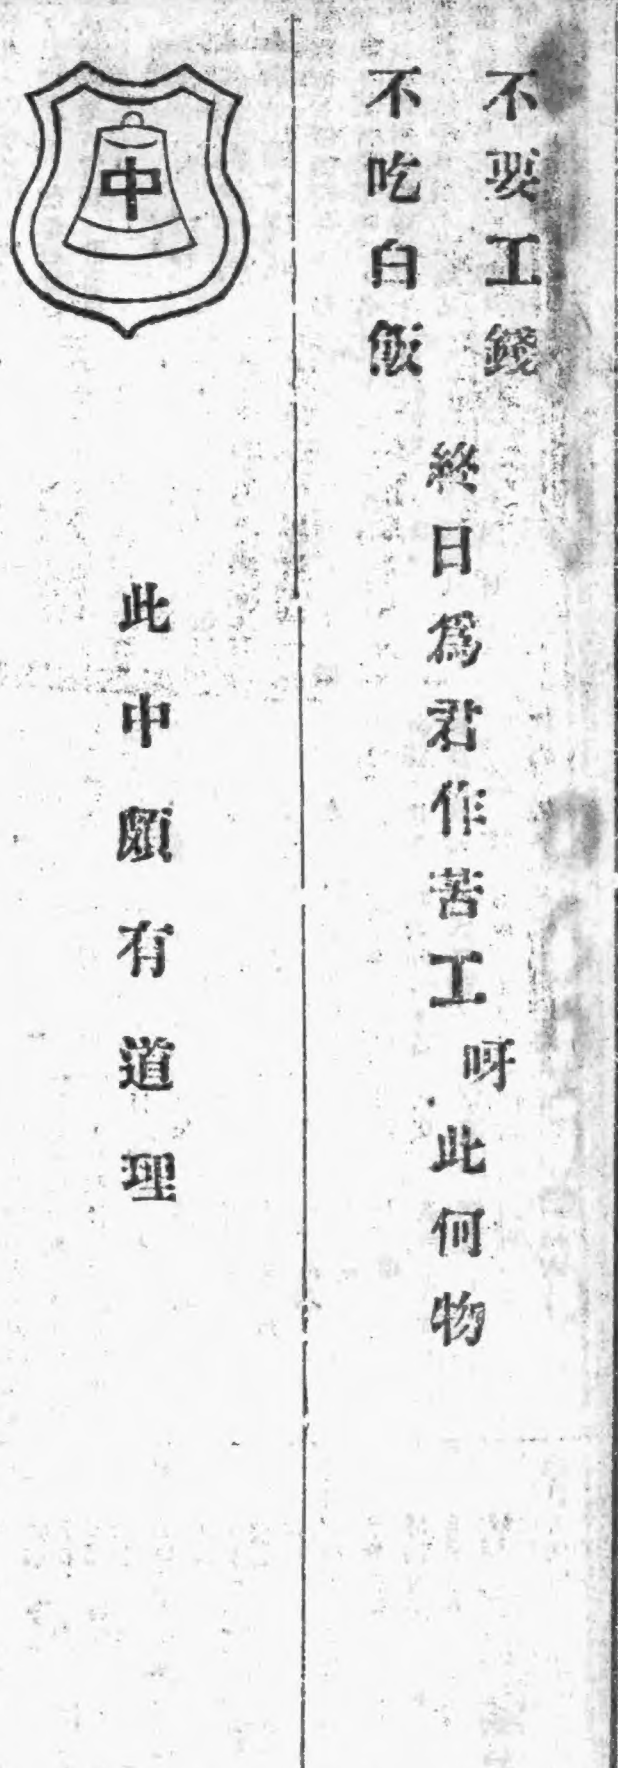 不要工錢
不吃白飯
終日爲君作苦工
呀
此何物
中
此中頗有道理